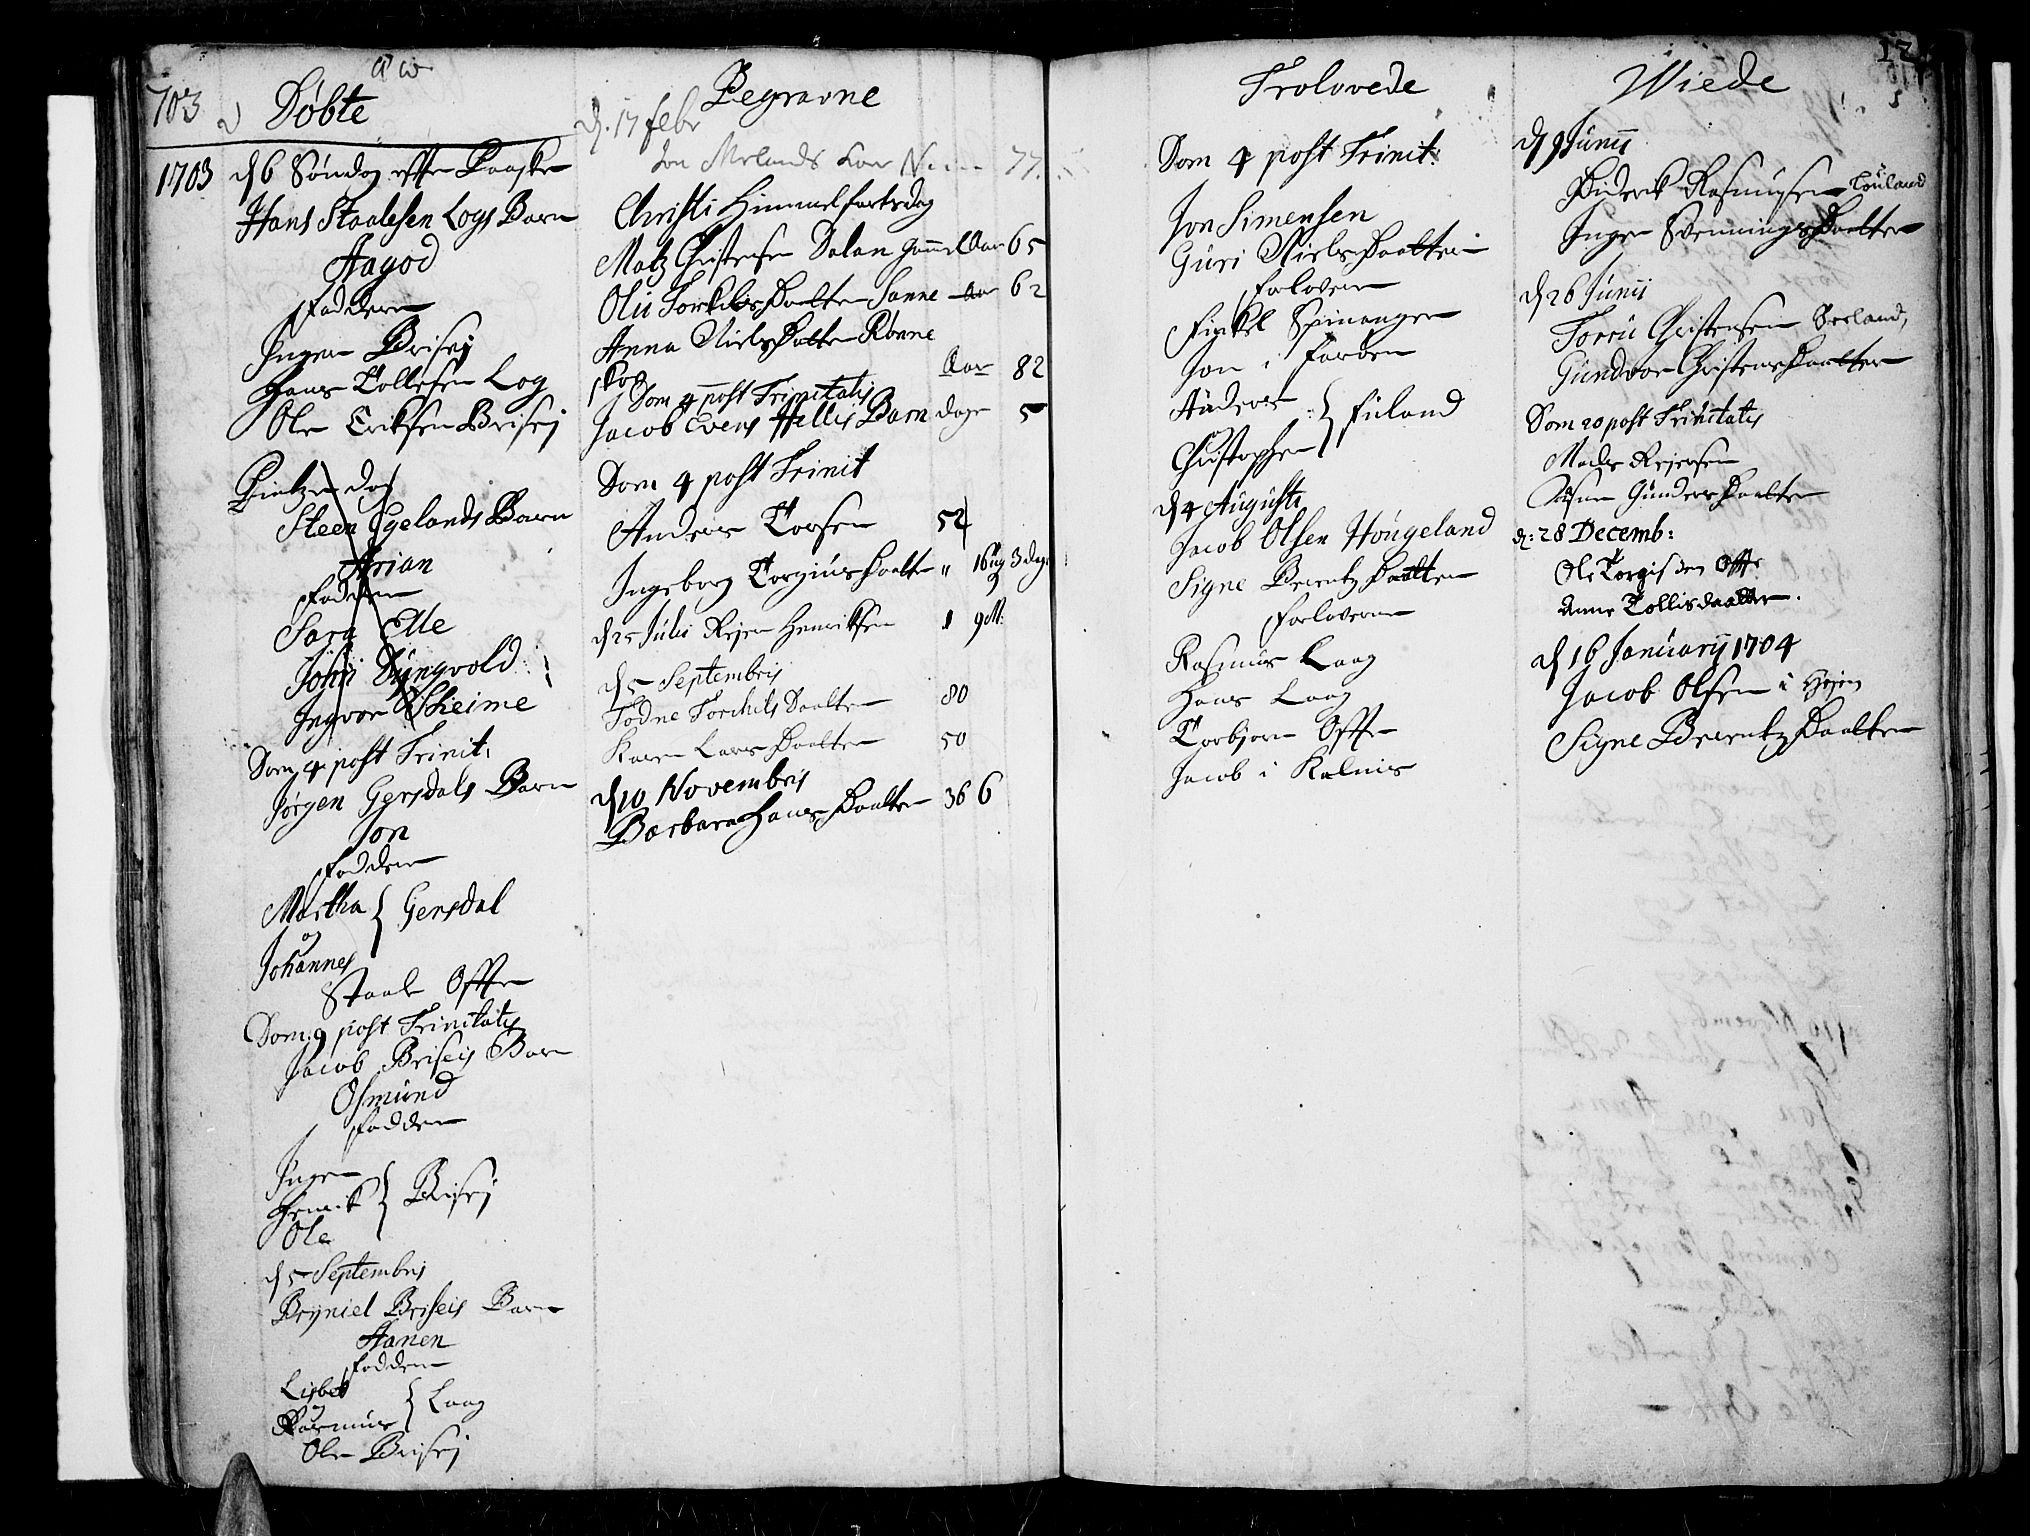 703
Døbte
1703 d 6 Søndag efter Paaske
Hans Staalesen Logs Barn
Aagod
Faddere
Inger Brisej
Hans Tollesen Log
Ole Eriksen Brisej
Pintze dag
Steen Egelands Barn
Arian
Faddere
Sara Elle
John Dyngvold
Ingvor Skeime
Dom 4 post Trinit:
Jørgen Gersdals Barn
Jon
Faddere
Martha } Gersdal
og
Johannes
Staale Offte
Dom: 9 post Trinitatis
Jacob Briseis Barn
Osmund
Faddere
Inger
Henrik } Brisej
Ole
d 5 Septembris
Bryniel Briseis Barn
Hanen
Faddere
Lisbet
og } Laag
Rasmus
Ole Brisej
Begravne
d. 17 febr
Jon Melands 77
Christi Himmelfartsdag
Matz Christensen Dalan gammel Aar 65
Olii Torkilsdaatter Sanne Aar 62
Anna Nielsdatter Rønne
skog Aar 82
Dom 4 post Trinitatis
Jacob Evens Hellis Barn dage 5
Dom 4 post Trinit
Anders Torsen 52
Ingeborg Torgiusdaatter " 16 ug 3 dage
d 25 Julii Rejer Henriksen 1 9 M:
d 5 Septembris
Todne Torchilsdaatter 80
Karen Larsdaatter 50
d 10 Novembris
Barbara Hansdaatter 36 6
Trolovede
Dom 4 post Trinit:
Jon Simensen
Guri Nielsdaatter
Forlovere
Finkel Spinanger
Jon i Farøen
Anders
og } Fuland
Christopher
d 4 Augusti
Jacob Olsen Høugeland
Signe Berentzdaatter
Forlovere
Rasmus Laag
Hans Laag
Torbjørn Offte
Jacob i Kalnis
Wiede
d 9 Junii
Diderik Rasmusen Touland
Inger Svenningsdaatter
d 26 Junii
Torrii Christensen Seeland,
Gundvor Christensdaatter
Dom 20 post Trinitatis
Mads Rejersen
Gundersdaatter
d: 28 Decemb:
Ole Torgisen Offte
Anne Tollisdaatter.
d 16 Januarij 1704
Jacob Olsen i Højen
Signe Berentzdaatter